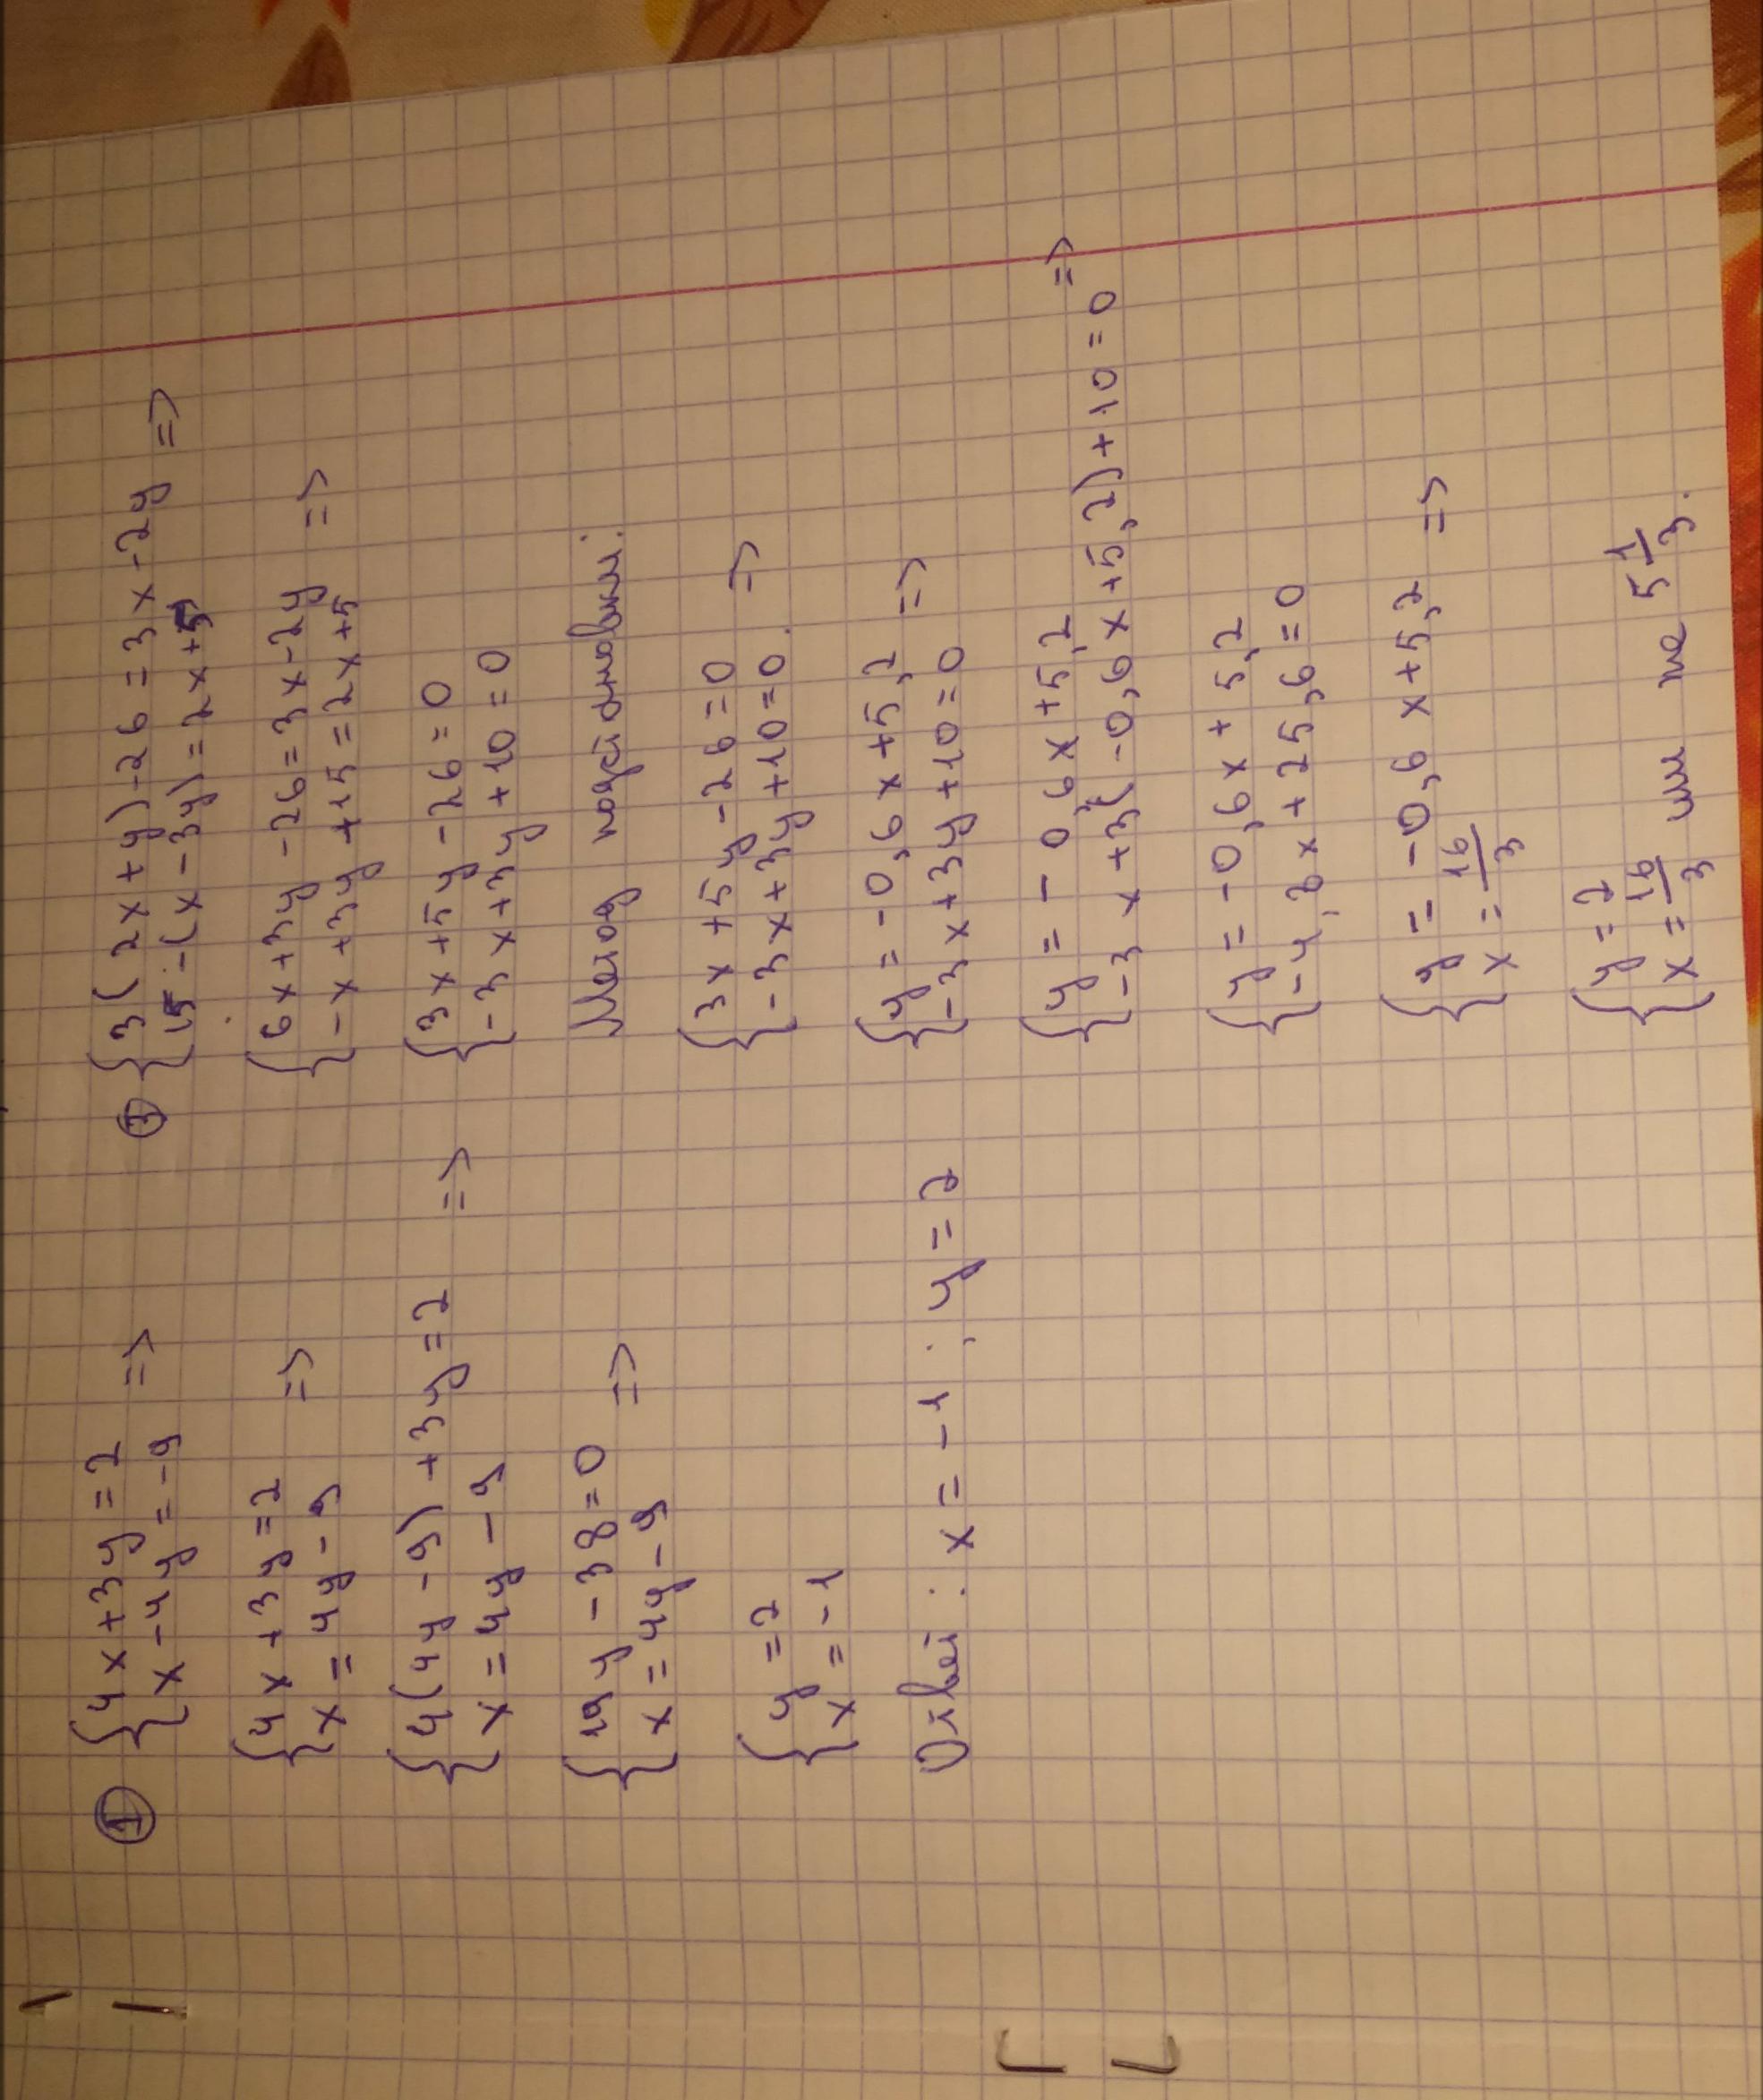 ① { 4x+3y=2 =>
x-4y=-9
{ 4x+3y=2 =>
x=4y-9
{ 4(4y-9)+3y=2 =>
x=4y-9
{ 19y-38=0 =>
x=4y-9
{ y=2
x=-1
Отвеі: x=-1; y=2
③ { 3(2x+y)-26=3x-2y =>
15-(x-3y)=2x+5
{ 6x+3y-26=3x-2y =>
-x+3y+15=2x+5
{ 3x+5y-26=0
-3x+3y+10=0
Метод подстановки:
{ 3x+5y-26=0 =>
-3x+3y+10=0.
{ y=-0,6x+5,2 =>
-3x+3y+10=0
{ y=-0,6x+5,2 =>
-3x+3(-0,6x+5,2)+10=0
{ y=-0,6x+5,2
-4,8x+25,6=0
{ y=-0,6x+5,2 =>
x=16/3
{ y=2
x=16/3 или же 5 1/3.